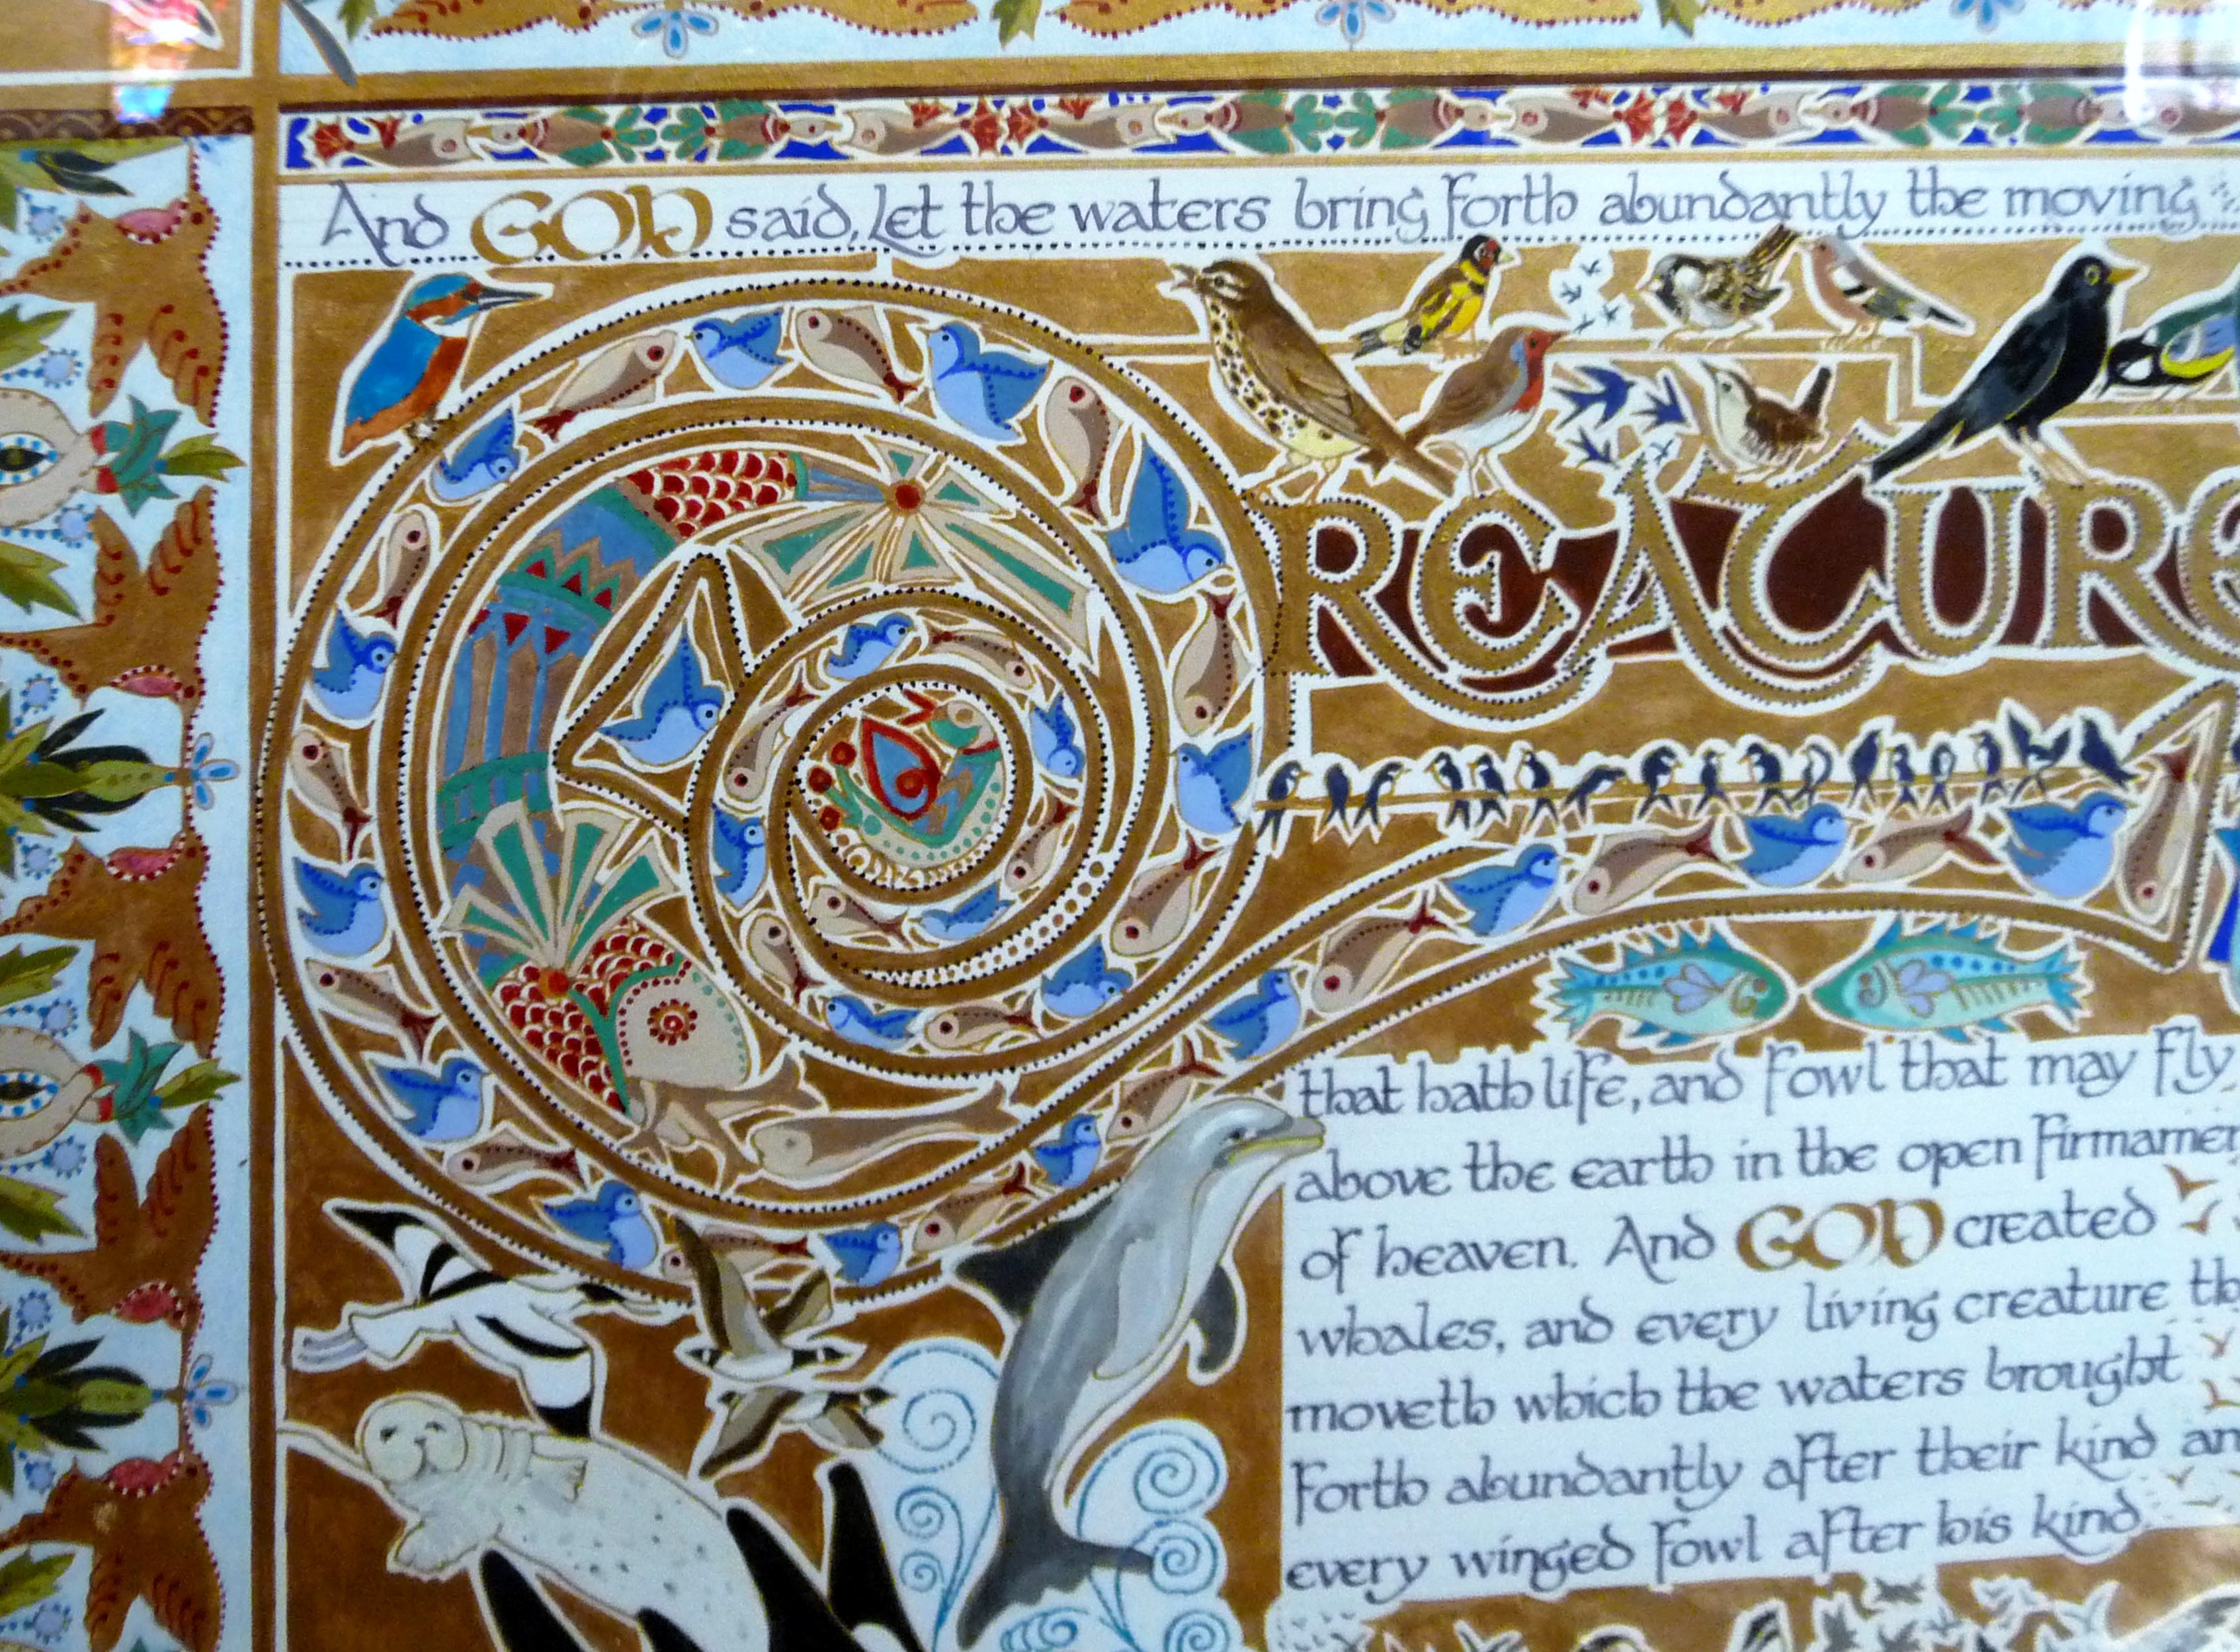 And GOD said, Let the waters bring forth abundantly the moving
CREATURE
that hath life, and fowl that may fly
above the earth in the open firmamen
of heaven. And GOD created
whales, and every living creature th
moveth which the waters brought
forth abundantly after their kind an
every winged fowl after his kind.